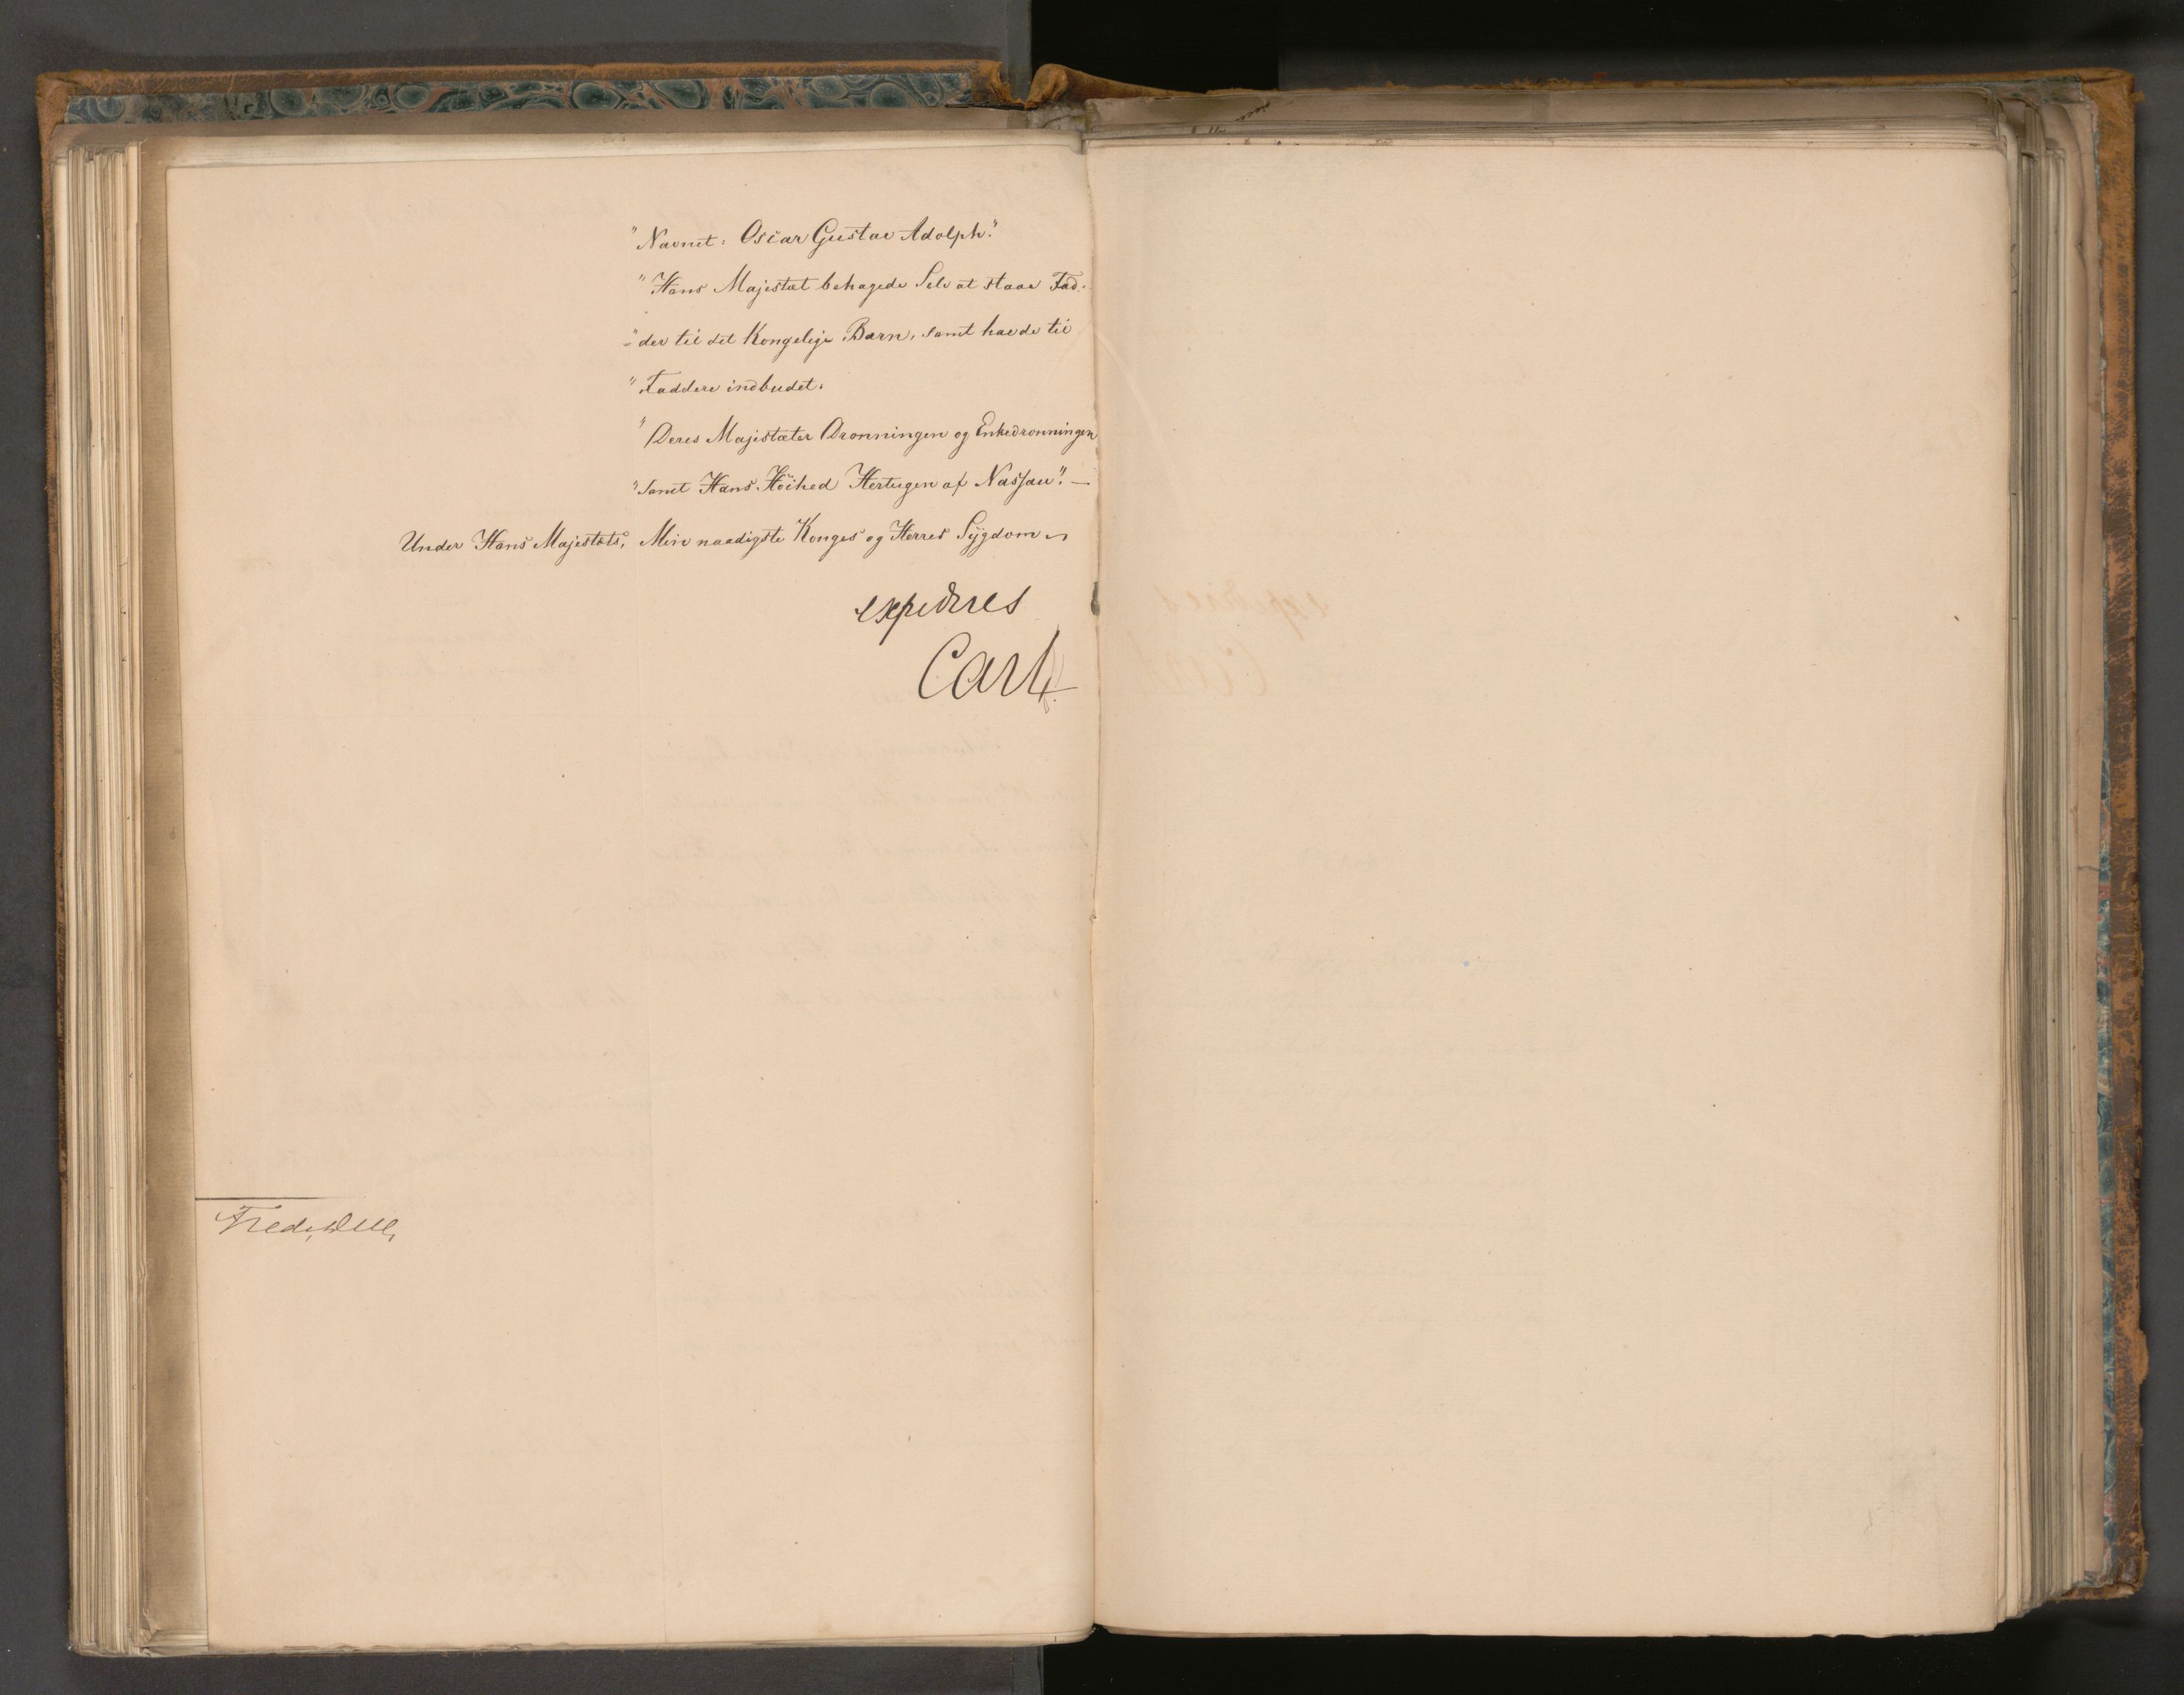 "Navnet: Oscar Gustav Adolph."
"Hans Majestæt behagede Selv at staae Fad-
"der til det Kongelige Barn, samt havde til
"Faddere indbudet.
"Deres Majestæter Dronningen og Enkedronningen
"samt Hans Höihed Hertugen af Nassau". —
Under Hans Majestæts, Min naadigste Konges og Herres Sygdom
expederes
Carl
Fred. Due